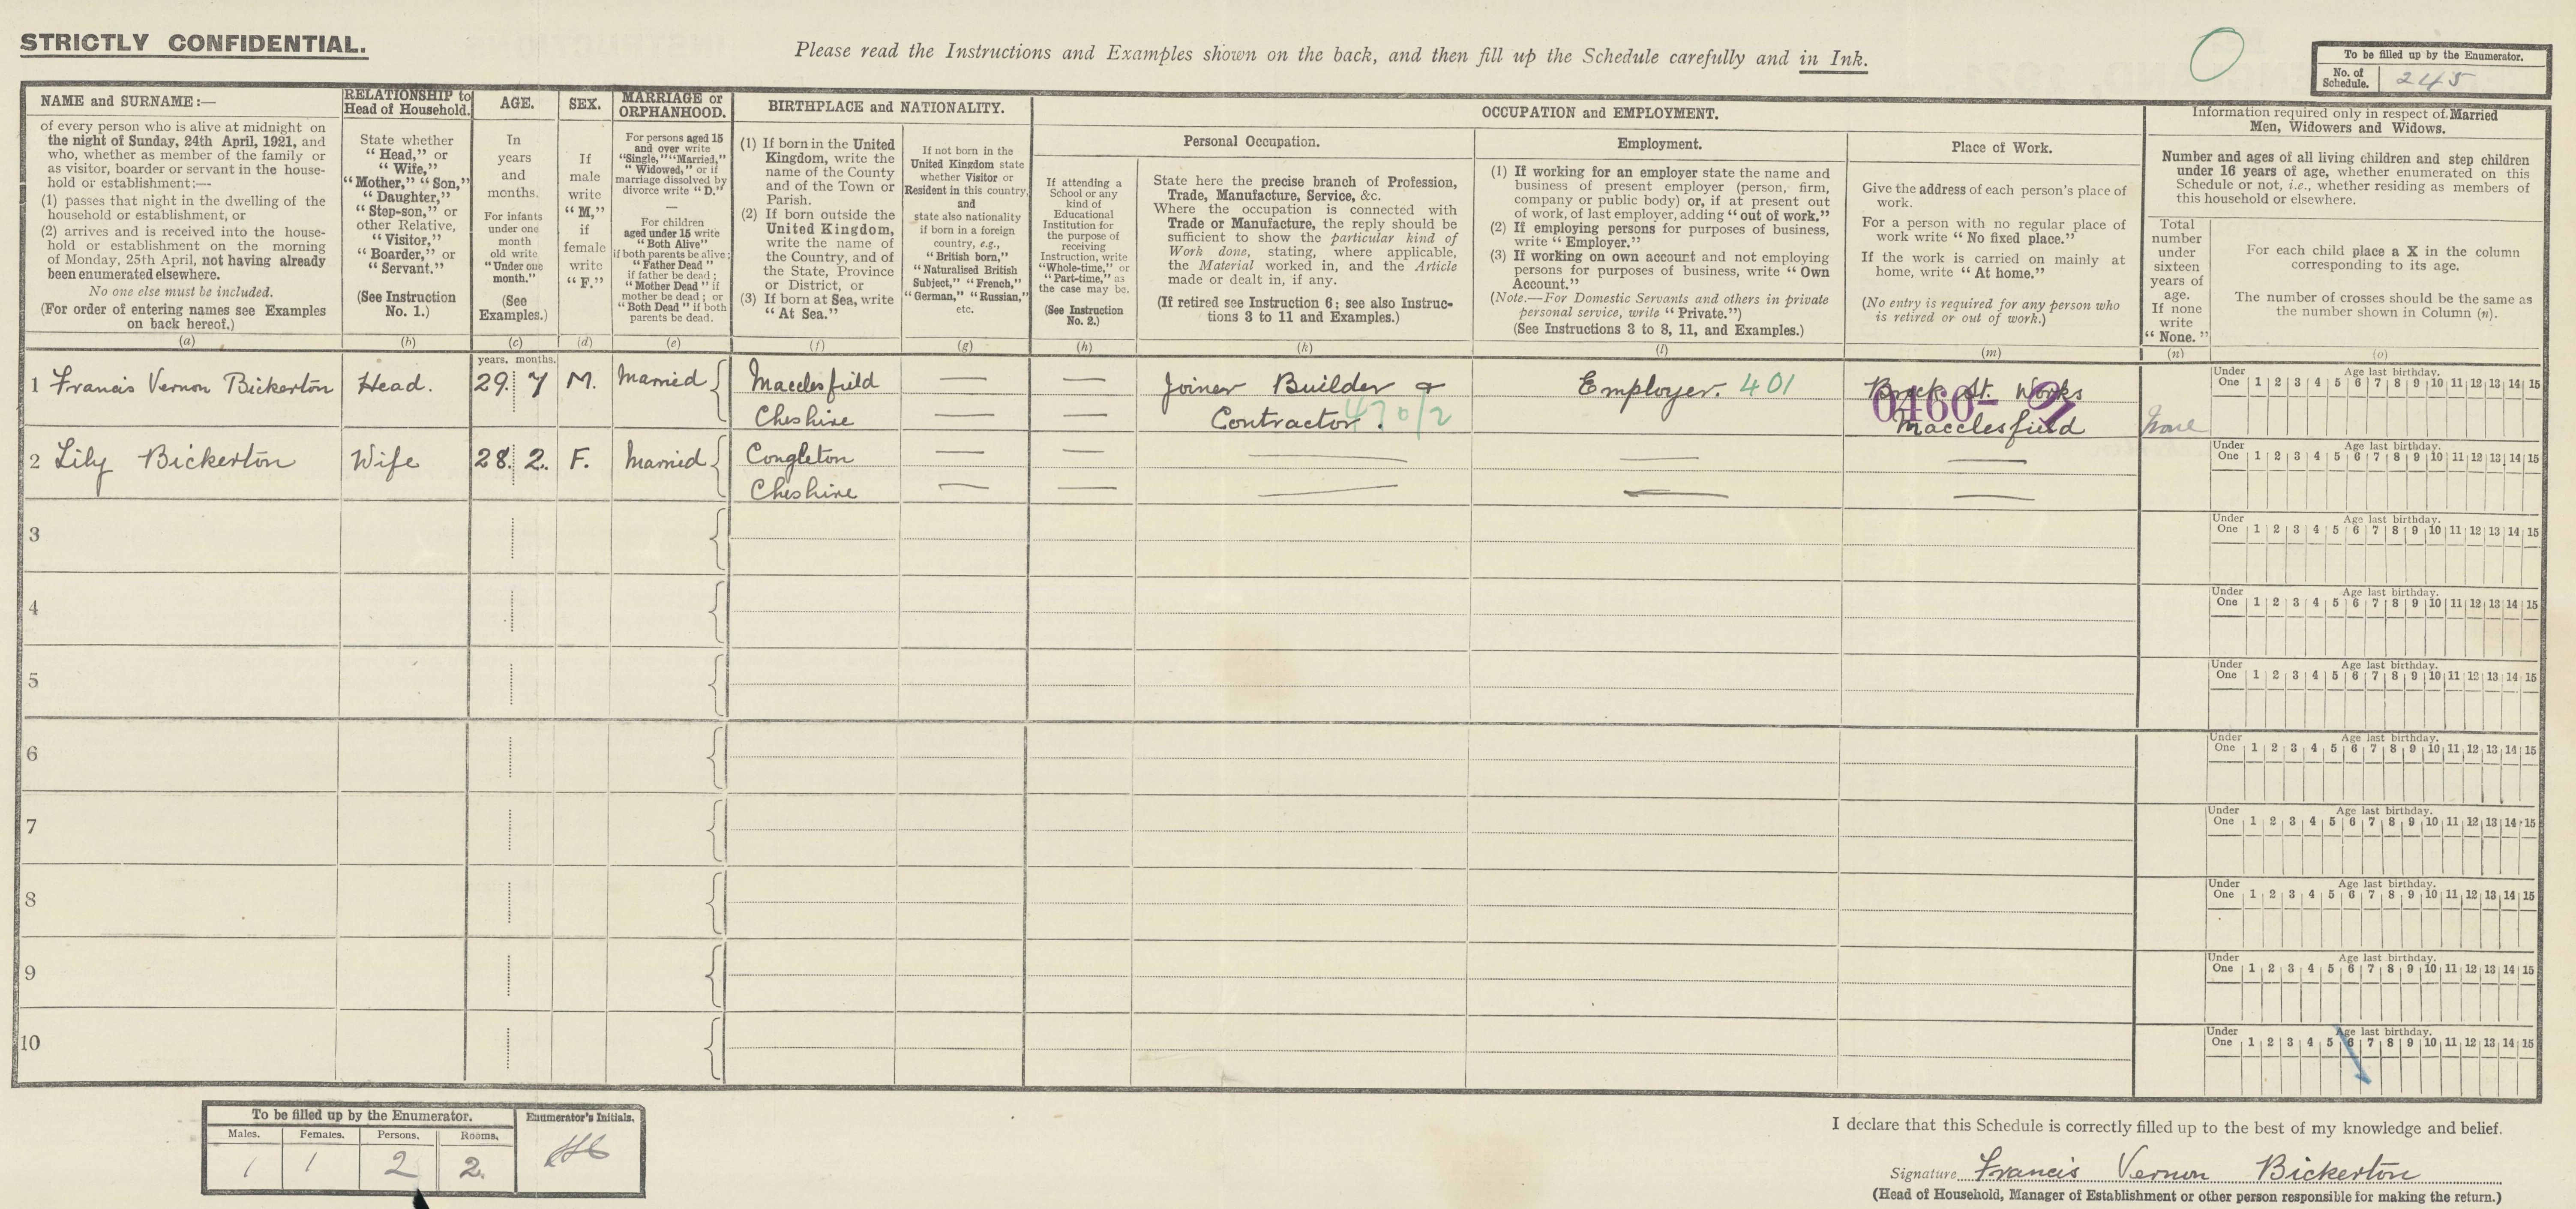 STRICTLY CONFIDENTIAL.
Please read the Instructions and Examples shown on the back, and then fill up the Schedule carefully and in Ink.
To be filled up by the Enumerator.
No. of Schedule. 245
NAME and SURNAME:—
of every person who is alive at midnight on
the night of Sunday, 24th April, 1921, and
who, whether as member of the family or
as visitor, boarder or servant in the house-
hold or establishment:—
(1) passes that night in the dwelling of the
household or establishment, or
(2) arrives and is received into the house-
hold or establishment on the morning
of Monday, 25th April, not having already
been enumerated elsewhere.
No one else must be included.
(For order of entering names see Examples
on back hereof.)
(a)
RELATIONSHIP to
Head of Household.
State whether
"Head," or
"Wife,"
"Mother," "Son,"
"Daughter,"
"Step-son," or
other Relative,
"Visitor,"
"Boarder," or
"Servant."
(See Instruction
No. 1.)
(b)
AGE.
In
years
and
months.
For infants
under one
month
old write
"Under one
month."
(See
Examples.)
(c)
SEX.
If
male
write
"M,"
if
female
write
"F."
(d)
MARRIAGE or
ORPHANHOOD.
For persons aged 15
and over write
"Single," "Married,"
"Widowed," or if
marriage dissolved by
divorce write "D."
—
For children
aged under 15 write
"Both Alive"
if both parents be alive;
"Father Dead"
if father be dead;
"Mother Dead" if
mother be dead; or
"Both Dead" if both
parents be dead.
(e)
BIRTHPLACE and NATIONALITY.
(1) If born in the United
Kingdom, write the
name of the County
and of the Town or
Parish.
(2) If born outside the
United Kingdom,
write the name of
the Country, and of
the State, Province
or District, or
(3) If born at Sea, write
"At Sea."
(f)
If not born in the
United Kingdom state
whether Visitor or
Resident in this country,
and
state also nationality
if born in a foreign
country, e.g.,
"British born,"
"Naturalised British
Subject," "French,"
"German," "Russian,"
etc.
(g)
OCCUPATION and EMPLOYMENT.
Personal Occupation.
If attending a
School or any
kind of
Educational
Institution for
the purpose of
receiving
Instruction, write
"Whole-time," or
"Part-time," as
the case may be.
(See Instruction
No. 2.)
(h)
State here the precise branch of Profession,
Trade, Manufacture, Service, &c.
Where the occupation is connected with
Trade or Manufacture, the reply should be
sufficient to show the particular kind of
Work done, stating, where applicable,
the Material worked in, and the Article
made or dealt in, if any.
(If retired see Instruction 6; see also Instruc-
tions 3 to 11 and Examples.)
(k)
Employment.
(1) If working for an employer state the name and
business of present employer (person, firm,
company or public body) or, if at present out
of work, of last employer, adding "out of work."
(2) If employing persons for purposes of business,
write "Employer."
(3) If working on own account and not employing
persons for purposes of business, write "Own
Account."
(Note.—For Domestic Servants and others in private
personal service, write "Private.")
(See Instructions 3 to 8, 11, and Examples.)
(l)
Place of Work.
Give the address of each person's place of
work.
For a person with no regular place of
work write "No fixed place."
If the work is carried on mainly at
home, write "At home."
(No entry is required for any person who
is retired or out of work.)
(m)
Information required only in respect of Married
Men, Widowers and Widows.
Number and ages of all living children and step children
under 16 years of age, whether enumerated on this
Schedule or not, i.e., whether residing as members of
this household or elsewhere.
Total
number
under
sixteen
years of
age.
If none
write
"None."
(n)
For each child place a X in the column
corresponding to its age.
The number of crosses should be the same as
the number shown in Column (n).
(o)
years. months.
1 Francis Vernon Bickerton Head. 29. 7 M. Married Macclesfield — — Joiner Builder & Employer. 401 St. Works
Cheshire — — Contractor. 470/2 0460- Macclesfield None
Under One 1 2 3 4 5 6 7 8 9 10 11 12 13 14 15
Age last birthday.
2 Lily Bickerton Wife 28. 2. F. Married Congleton — — — — —
Cheshire — — — — —
Under One 1 2 3 4 5 6 7 8 9 10 11 12 13 14 15
Age last birthday.
3
Under One 1 2 3 4 5 6 7 8 9 10 11 12 13 14 15
Age last birthday.
4
Under One 1 2 3 4 5 6 7 8 9 10 11 12 13 14 15
Age last birthday.
5
Under One 1 2 3 4 5 6 7 8 9 10 11 12 13 14 15
Age last birthday.
6
Under One 1 2 3 4 5 6 7 8 9 10 11 12 13 14 15
Age last birthday.
7
Under One 1 2 3 4 5 6 7 8 9 10 11 12 13 14 15
Age last birthday.
8
Under One 1 2 3 4 5 6 7 8 9 10 11 12 13 14 15
Age last birthday.
9
Under One 1 2 3 4 5 6 7 8 9 10 11 12 13 14 15
Age last birthday.
10
Under One 1 2 3 4 5 6 7 8 9 10 11 12 13 14 15
Age last birthday.
To be filled up by the Enumerator.
Males. Females. Persons. Rooms.
1 1 2 2.
Enumerator's Initials.
I declare that this Schedule is correctly filled up to the best of my knowledge and belief.
Signature Francis Vernon Bickerton
(Head of Household, Manager of Establishment or other person responsible for making the return.)